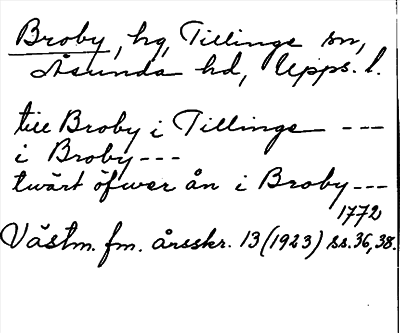 Broby, hg, Tillinge sn,
Åsunda hd, Upps. l.
till Broby i Tillinge ---
i Broby---
twärt öfwer ån i Broby---
1772
Västm. fm. årsskr. 13 (1923) ss. 36, 38.